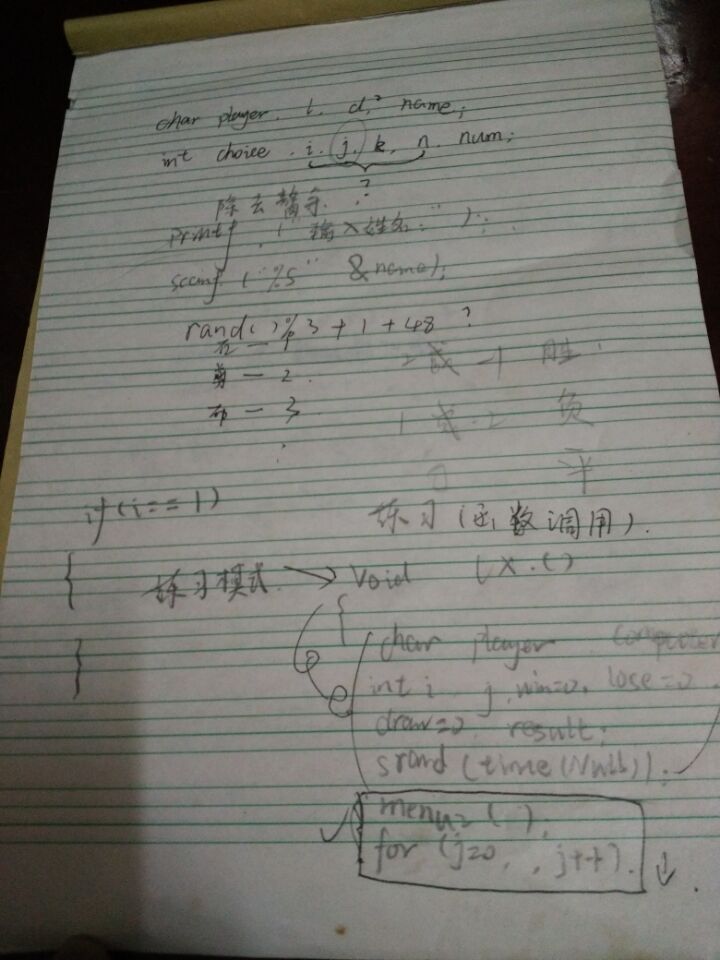 char player, t, d, name;
int choice, i, j, k, n, num;
除去 ?
printf ("输入姓名:");
scanf ("%s" &name);
rand()%3+1+48 ?
石一1
剪一2 2或-1 胜
布一3 1或-2 负
0 平
if(i==1) 练习(函数调用).
{ 练习模式 → void LX()
{
char player computer
} int i j, win=0, lose=0
draw=0 result;
srand (time(Null));
menu2();
for (j=0, , j++)